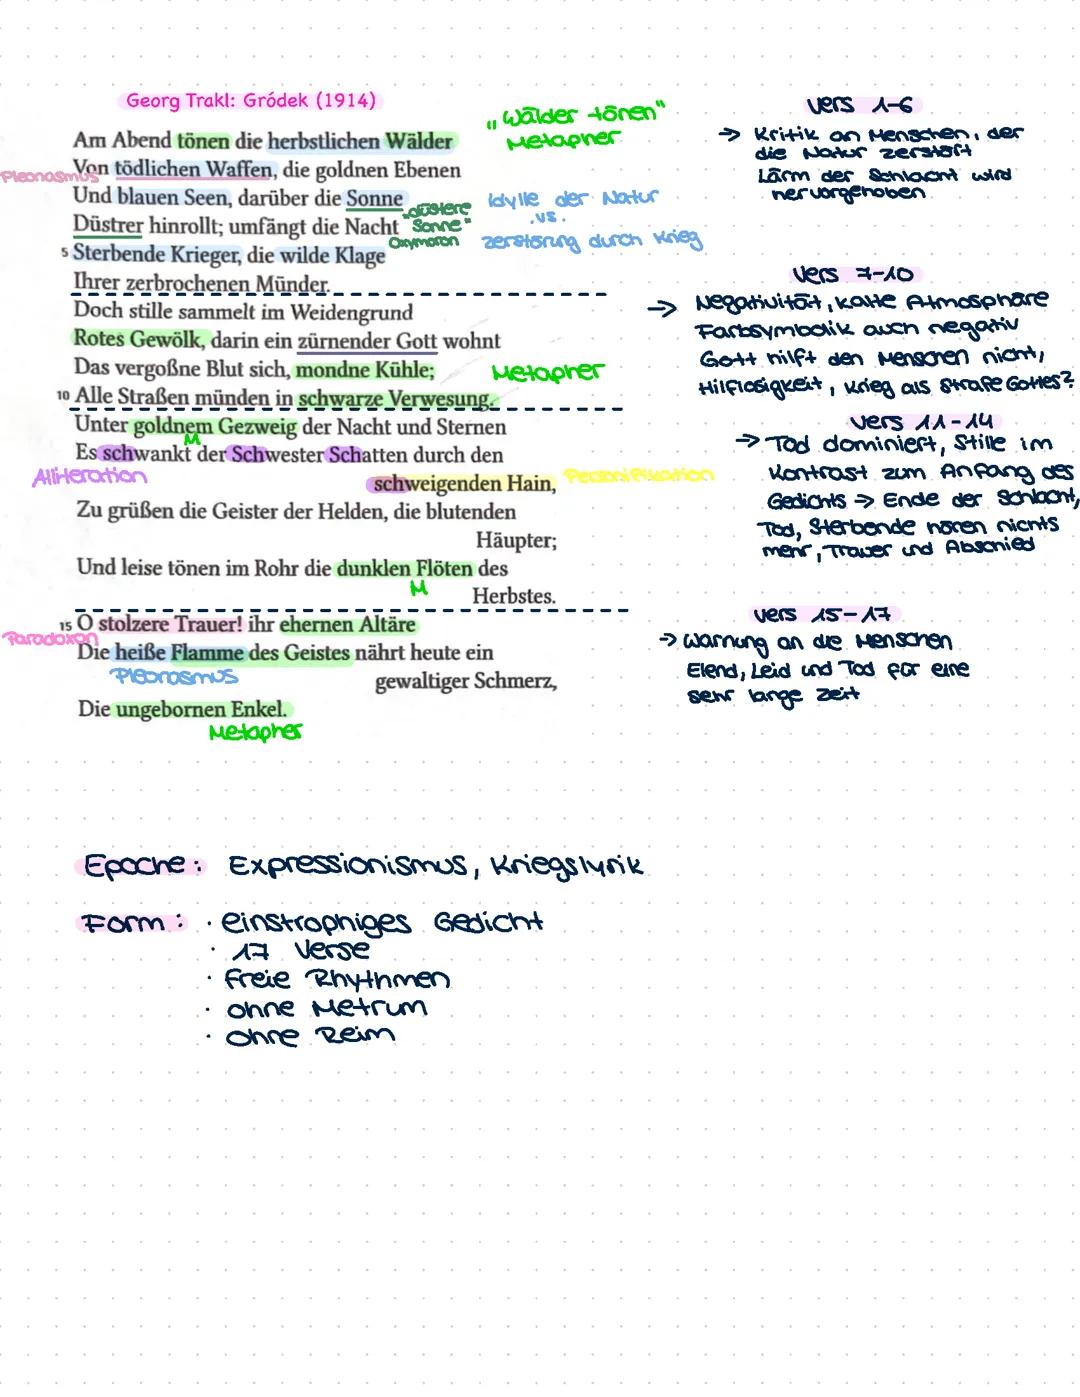 Georg Trakl: Gródek (1914)
Am Abend tönen die herbstlichen Wälder
Von tödlichen Waffen, die goldnen Ebenen
Und blauen Seen, darüber die Sonne
Düstrer hinrollt; umfängt die Nacht
5 Sterbende Krieger, die wilde Klage
Ihrer zerbrochenen Münder.
Doch stille sammelt im Weidengrund
Rotes Gewölk, darin ein zürnender Gott wohnt
Das vergoßne Blut sich, mondne Kühle;
10 Alle Straßen münden in schwarze Verwesung.
Unter goldnem Gezweig der Nacht und Sternen
Es schwankt der Schwester Schatten durch den
schweigenden Hain,
Zu grüßen die Geister der Helden, die blutenden
Häupter;
Und leise tönen im Rohr die dunklen Flöten des
Herbstes.
15 O stolzere Trauer! ihr ehernen Altäre
Die heiße Flamme des Geistes nährt heute ein
gewaltiger Schmerz,
Die ungebornen Enkel.
Pleonasmus
Alliteration
Paradoxon
Pleonasmus
Metapher
M
M
„Wälder tönen"
Metapher
Idylle der Natur
.vs.
zerstörung durch Krieg
„düstere
Sonne"
Oxymoron
Metapher
Personifikation
Vers 1-6
→ Kritik an Menschen, der
die Natur zerstört
Lärm der Schlacht wird
hervorgehoben
Vers 7-10
→ Negativität, kalte Atmosphäre
Farbsymbolik auch negativ
Gott hilft den Menschen nicht,
Hilflosigkeit, Krieg als Strafe Gottes?
Vers 11-14
→ Tod dominiert, Stille im
Kontrast zum Anfang des
Gedichts → Ende der Schlacht,
Tod, Sterbende hören nichts
mehr, Trauer und Abschied
Vers 15-17
→ Warnung an die Menschen
Elend, Leid und Tod für eine
sehr lange Zeit
Epoche: Expressionismus, Kriegslyrik
Form: · einstrophiges Gedicht
· 17 Verse
· freie Rhythmen
· ohne Metrum
· ohne Reim